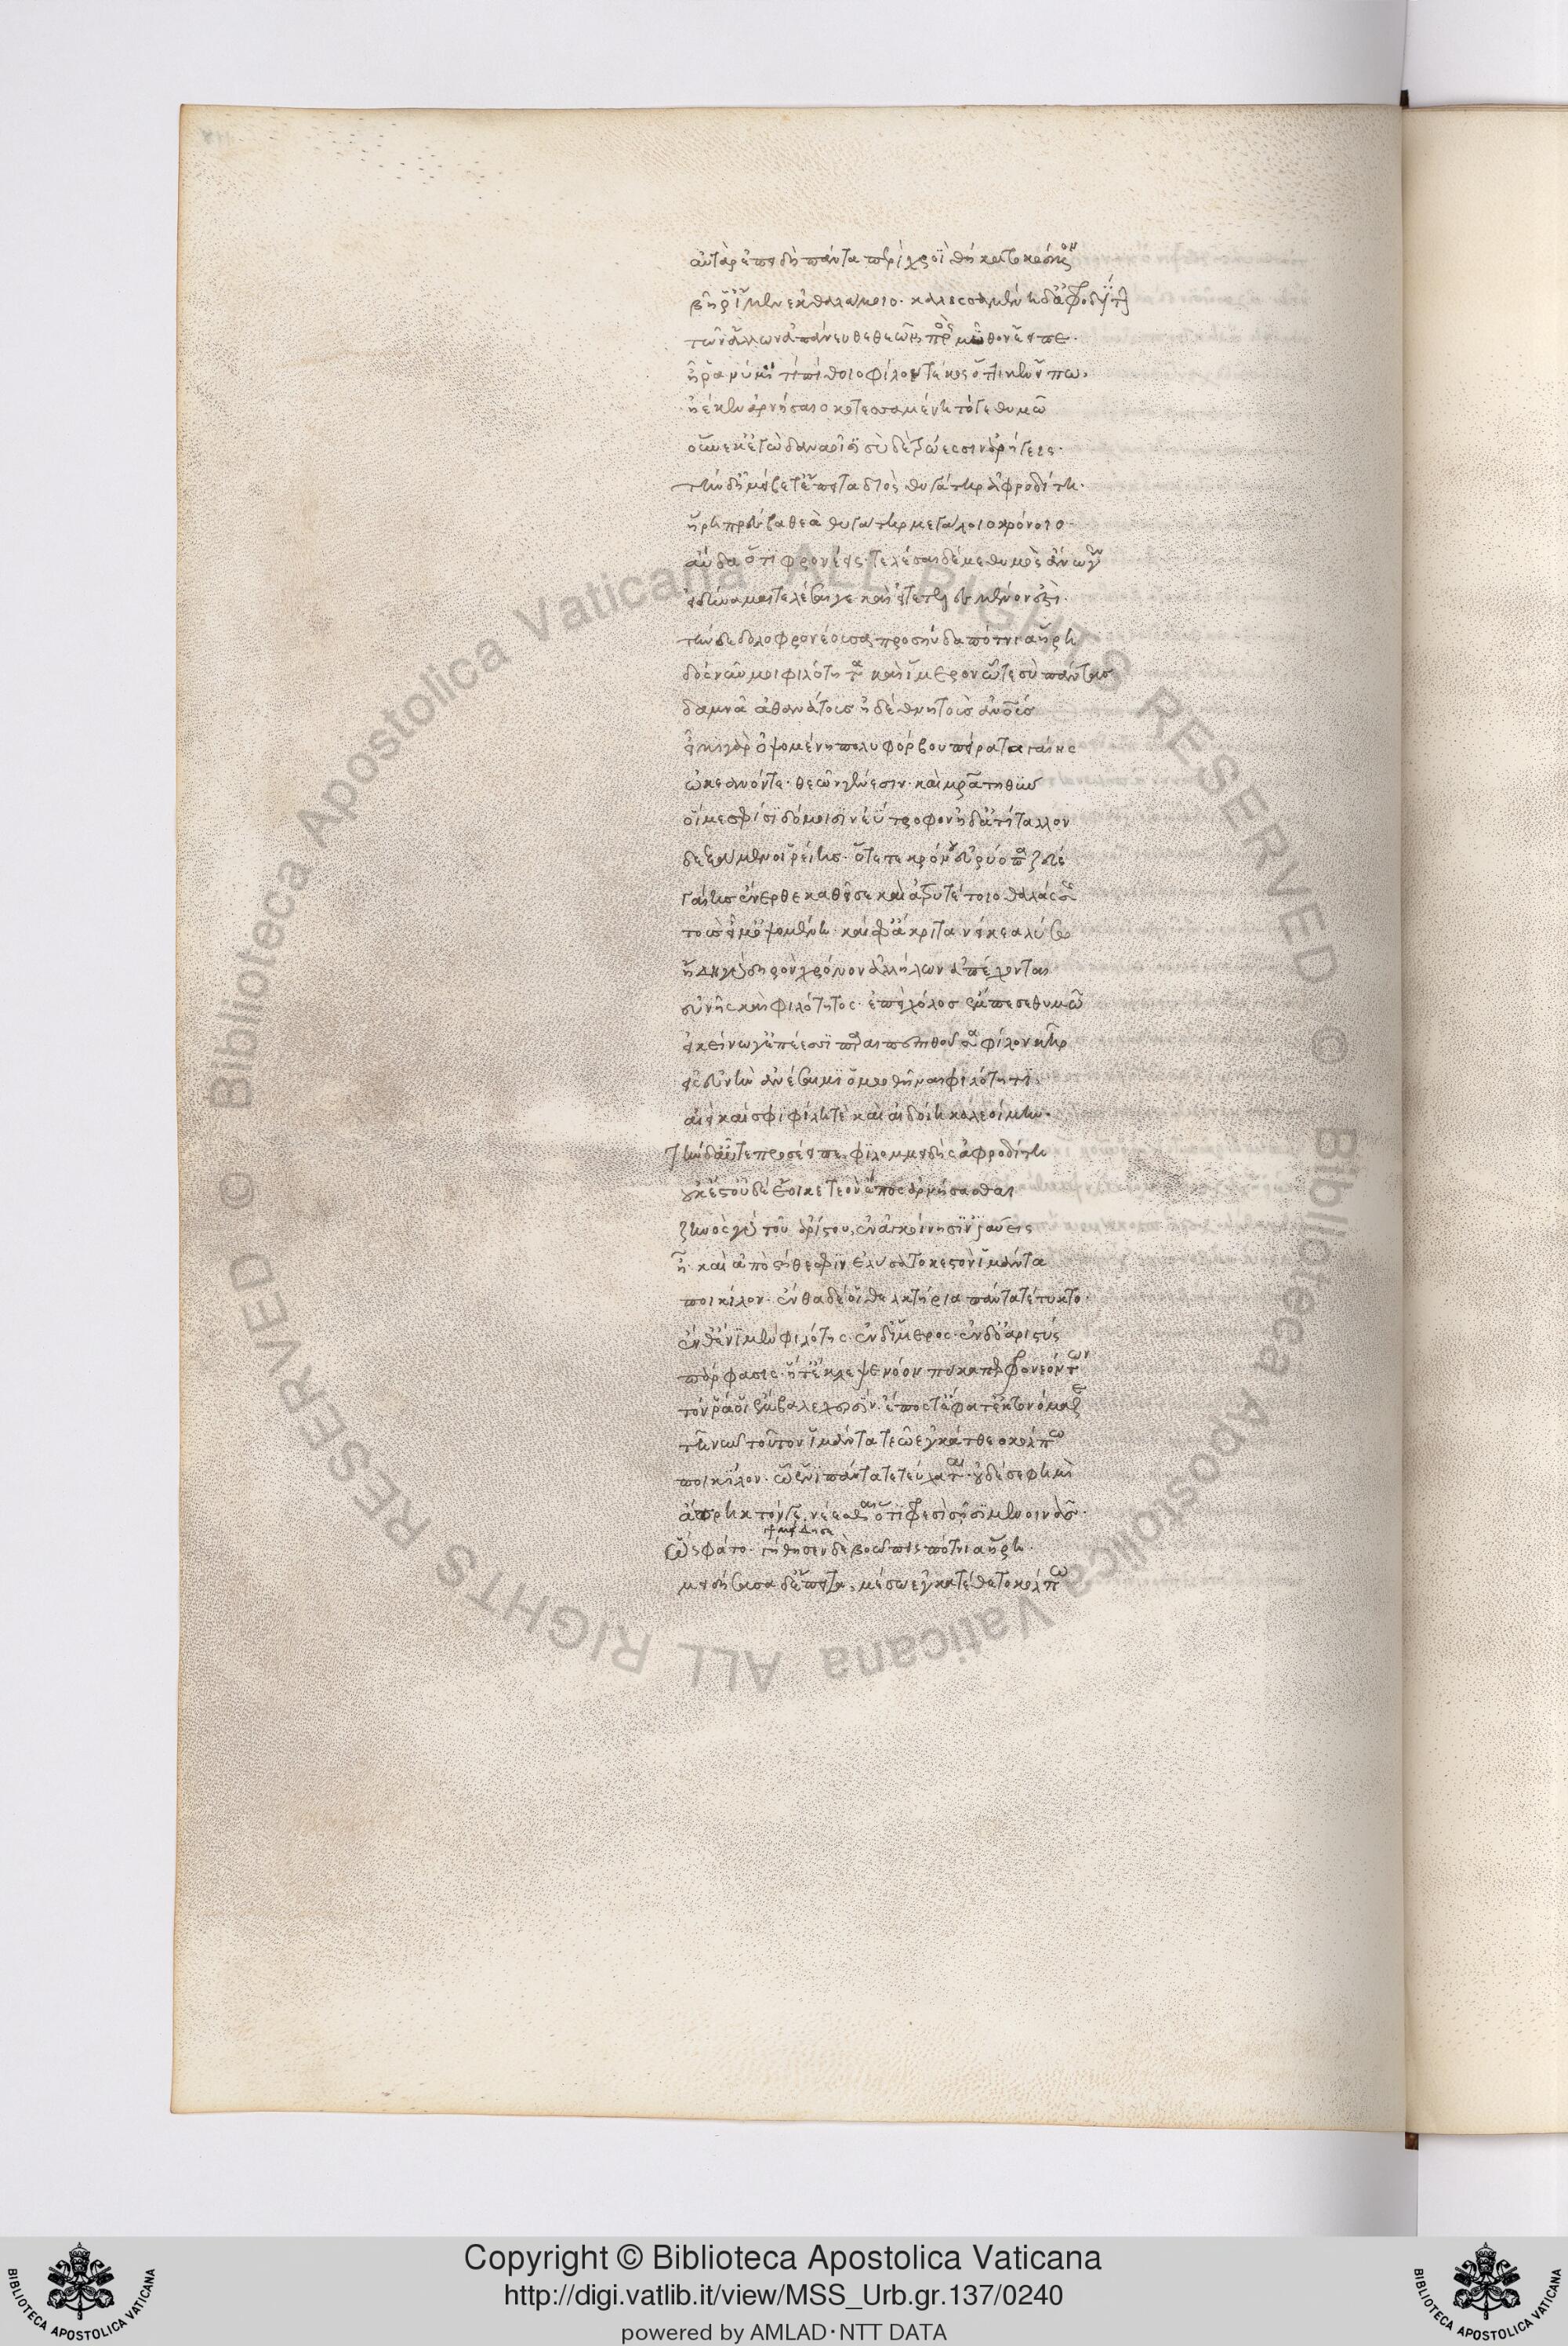 αὐτὰρ ἐπειδὴ πάντα περὶ χροῒ θήκατο κόσμον
βῆ ῥ' ἴμεν ἐκ θαλάμοιο· καλεσσαμένη δ' ἀφροδίτην
τῶν ἄλλων ἀπάνευθε θεῶν πρὸς μῦθον ἔειπε·
ἦ ῥά νύ μοί τι πίθοιο φίλον τέκος ὅττι κεν εἴπω,
ἠέ κεν ἀρνήσαιο κοτεσσαμένη τό γε θυμῶ
οὕνεκ' ἐγὼ δαναοῖσι σὺ δὲ τρώεσσιν ἀρήγεις·
τὴν δ' ἠμείβετ' ἔπειτα διὸς θυγάτηρ ἀφροδίτη·
ἥρη πρέσβα θεὰ θυγάτηρ μεγάλοιο κρόνοιο·
αὔδα ὅτι φρονέεις· τελέσαι δέ με θυμὸς ἄνωγεν
εἰ δύναμαι τελέσαι γε καὶ εἰ τετελεσμένον ἐστί·
τὴν δὲ δολοφρονέουσα προσηύδα πότνια ἥρη
δὸς νῦν μοι φιλότητα καὶ ἵμερον ὧτε σὺ πάντας
δαμνᾶ ἀθανάτους ἠδὲ θνητοὺς ἀνθρώπους
εἶμι γὰρ ὀψομένη πολυφόρβου πείρατα γαίης
ὠκεανόν τε· θεῶν γένεσιν· καὶ μητέρα τηθύν
οἵ με σφοῖσι δόμοισιν ἐῢ τρέφον ἠδ' ἀτίταλλον
δεξάμενοι ῥείης· ὅτε τε κρόνον εὐρύοπα ζεύς
γαίης ἔνερθε καθεῖσε καὶ ἀτρυγέτοιο θαλάσσης
τοὺς εἶμ' ὀψομένη· καί σφ' ἄκριτα νείκεα λύσω
ἤδη γὰρ δηρὸν χρόνον ἀλλήλων ἀπέχονται
εὐνῆς καὶ φιλότητος· ἐπεὶ χόλος ἔμπεσε θυμῶ
εἰ κείνω γ' ἐπέεσσι παραιπεπιθοῦσα φίλον κῆρ
εἰς εὐνὴν ἀνέσαιμι ὁμωθῆναι φιλότητι,
αἰεί κέ σφι φίλη τὲ καὶ αἰδοίη καλεοίμην·
τὴν δ' αὖτε προσέειπε φιλομμειδὴς ἀφροδίτη
οὐκ ἔστ' οὐδὲ ἔοικε τεὸν ἔπος ἀρνήσασθαι
ζηνὸς γὰρ τοῦ ἀρίστου, ἐν ἀγκοίνησιν ἰαύεις
ἦ· καὶ ἀπὸ στήθεσφιν ἐλύσατο κεστὸν ἱμάντα
ποικίλον· ἔνθα δέ οἱ θελκτήρια πάντα τέτυκτο·
ἔνθ' ἔνι μὲν φιλότης· ἐν δ' ἵμερος· ἐν δ' ὀαριστύς
πάρφασις· ἥ τ' ἔκλεψε νόον πύκα περ φρονεόντων
τόν ῥά οἱ ἔμβαλε χερσὶν· ἔπος τ' ἔφατ' ἔκ τ' ὀνόμαζε
τῆ νῦν τοῦτον ἱμάντα τεῶ ἐγκάτθεο κόλπω
ποικίλον· ὧ ἔνι πάντα τετεύχαται· οὐδέ σέ φημι
ἄπρηκτόν γε νέεσθαι ὅτι φρεσὶ σῆσι μενοινᾶς·
ὣς φάτο· γήθησεν δὲ βοῶπις πότνια ἥρη·
μειδήσασα δ' ἔπειτα, μέσω ἐγκάτθετο κόλπω
Copyright © Biblioteca Apostolica Vaticana
http://digi.vatlib.it/view/MSS_Urb.gr.137/0240
powered by AMLAD·NTT DATA